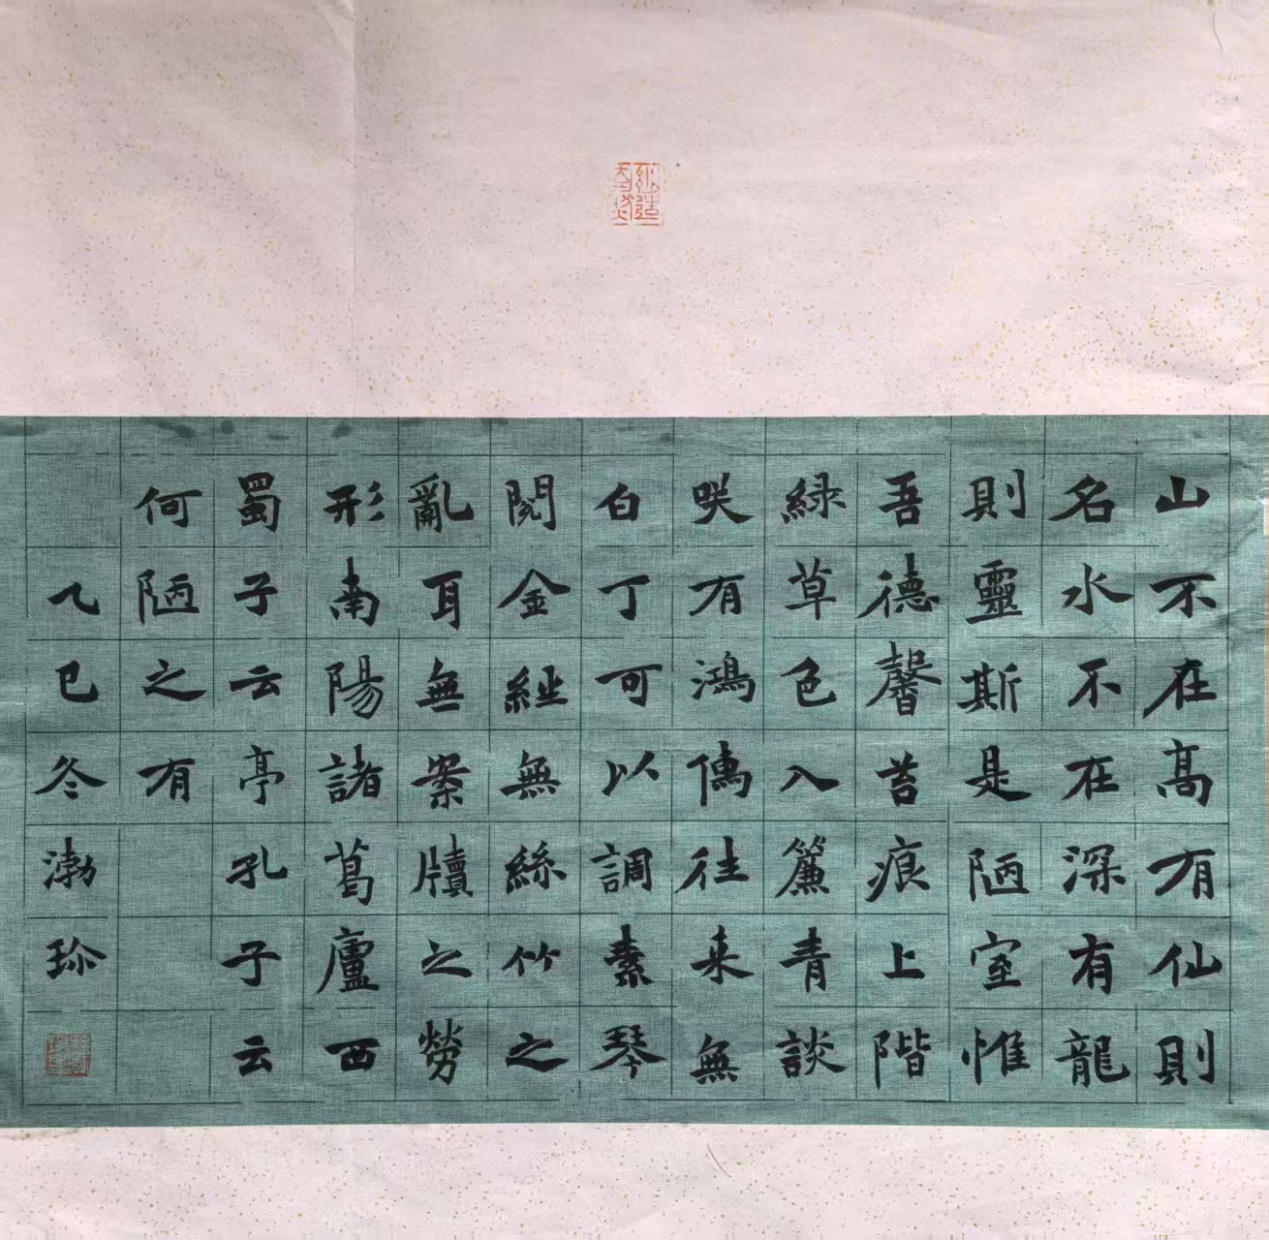 山不在高有仙則
名水不在深有龍
則靈斯是陋室惟
吾德馨苔痕上階
緑草色入簾青談
咲有鴻儒往来無
白丁可以調素琴
閲金經無絲竹之
亂耳無案牘之勞
形南陽諸葛廬西
蜀子云亭孔子云
何陋之有
乙巳冬渤珎